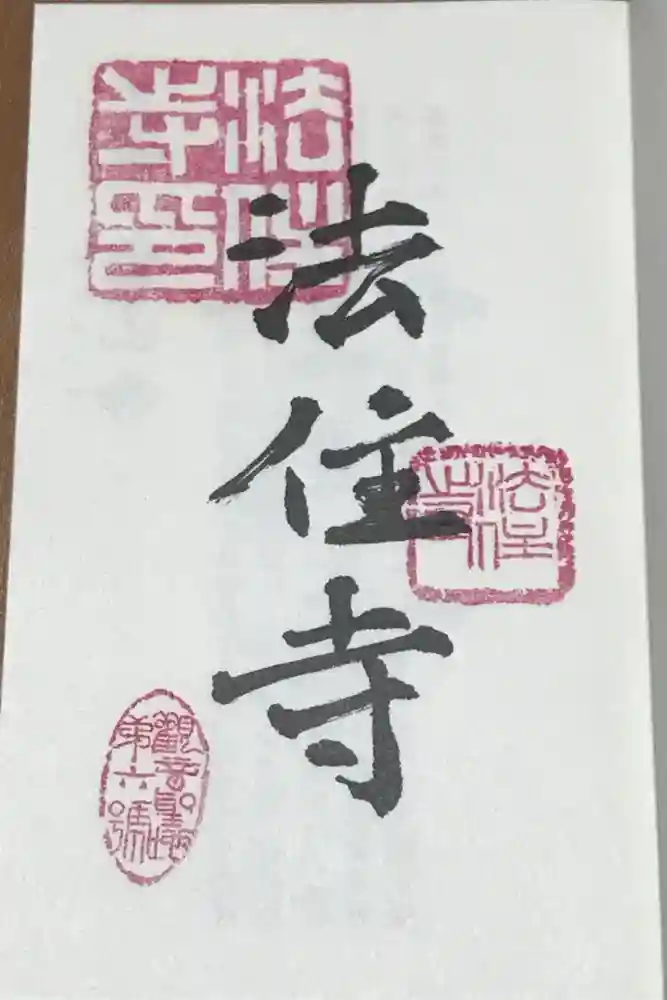 法住寺
法住
寺印
法住
寺
觀音聖蹟
第六號